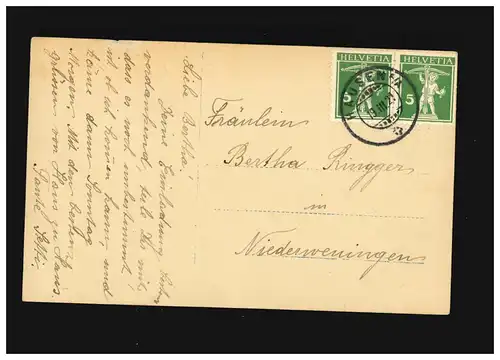 Liebe Bertha!
Deine Einladung
verdankend, teile Dir mit,
dass es noch unbestimmt
ist ob ich kommen kann, und
käme dann Sonntag
Morgen. Mit den besten
Grüssen von Haus zu Haus.
Tante
HELVETIA
5
HELVETIA
5
HAUSEN
Fräulein
Bertha Ringger
in
Niederweningen.